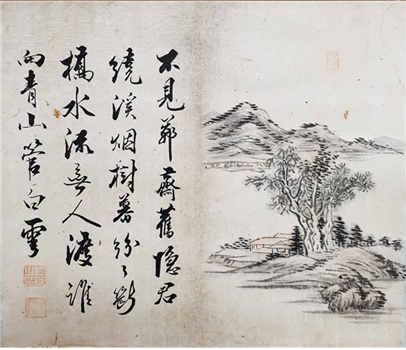 不見茆齋舊隱君
繞溪烟樹暮紛々斷
橋水流無人渡誰
向青山管白雲